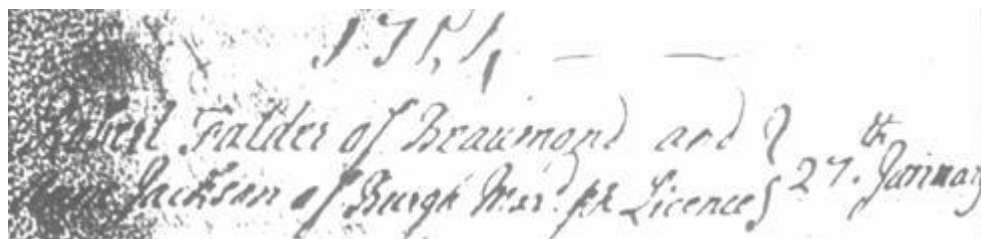 Robert Falder of Beaumond and
Jackson of Burgh Mar.d pr Licence 27.th January